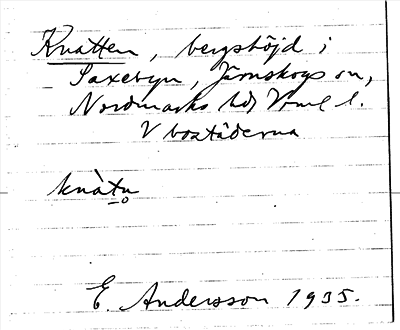 Knatten, bergshöjd i
Saxebyn, Järnskogs sn,
Nordmarks hd, Vrml l.
V bostäderna
knàtn̥
E. Andersson 1935.